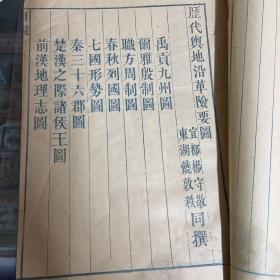 歷代輿地沿革險要圖 宜都楊守敬 東湖饒敦秩 同撰
禹貢九州圖
爾雅殷制圖
職方周制圖
春秋列國圖
七國形勢圖
秦三十六郡圖
楚漢之際諸侯王圖
前漢地理志圖